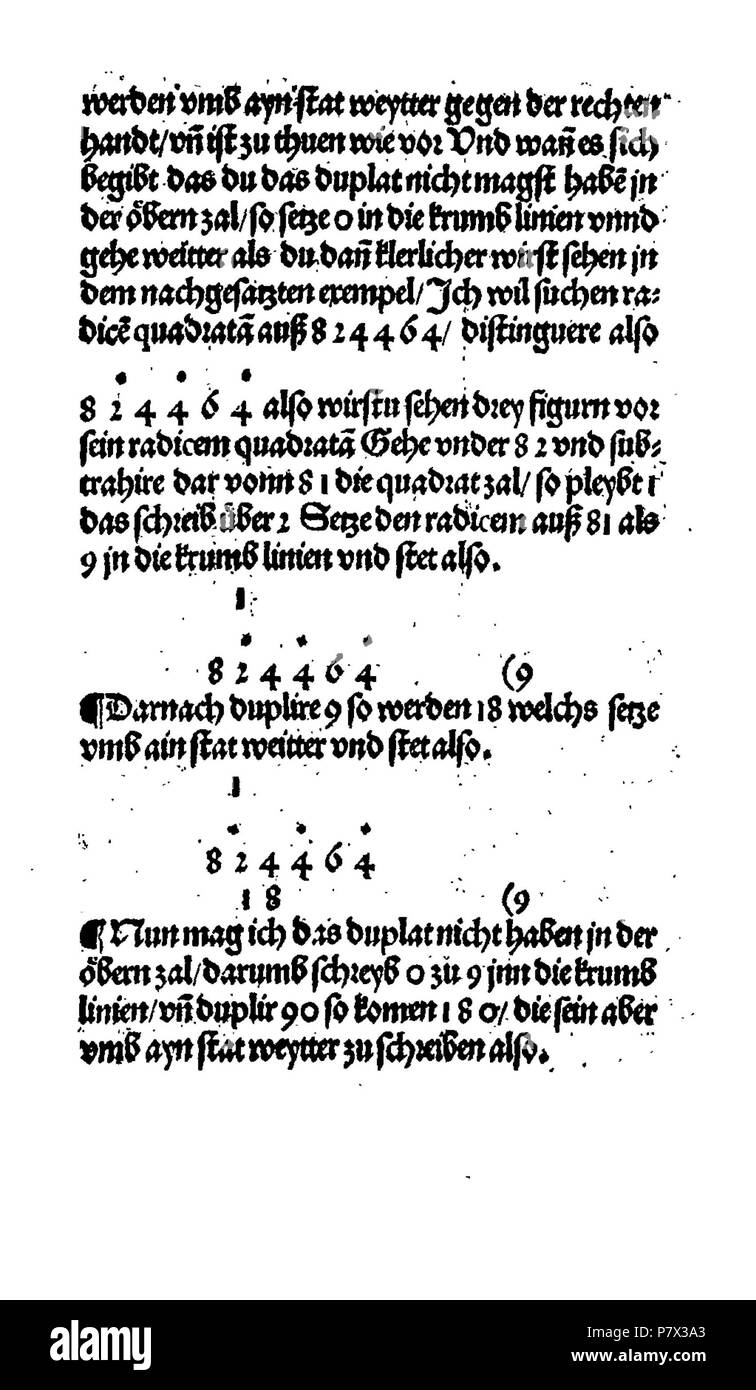 werden vmb ayn stat weytter gegen der rechten
handt/vn̄ ist zu thuen wie vor Vnd wan̄ es sich
begibt das du das duplat nicht magst habē jn
der öbern zal/so setze 0 in die krumb linien vnnd
gehe weitter als du dan̄ klerlicher wirst sehen jn
dem nachgesatzten exempel/Ich wil suchen ra⸗
dicē quadratā auß 8 2 4 4 6 4/ distinguere also
• • •
8 2 4 4 6 4 also wirstu sehen drey figurn vor
sein radicem quadratā Gehe vnder 8 2 vnd sub⸗
trahire dar vonn 8 1 die quadrat zal/ so pleybt 1
das schreib über 2 Setze den radicem auß 81 als
9 jn die krumb linien vnd stet also.
1
• • •
8 2 4 4 6 4 (9
¶Darnach duplire 9 so werden 18 welchs setze
vmb ain stat weitter vnd stet also.
1
• • •
8 2 4 4 6 4
1 8 (9
¶Nun mag ich das duplat nicht haben jn der
öbern zal/darumb schreyb 0 zu 9 jnn die krumb
linien/vn̄ duplir 90 so komen 1 8 0/ die sein aber
vmb ayn stat weytter zu schreiben also.
alamy
Image ID: P7X3A3
www.alamy.com